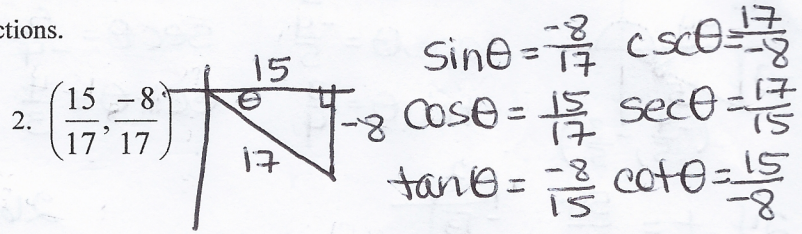 ctions.
2. (15/17, -8/17)
15
θ
-8
17
sinθ = -8/17 cscθ = 17/-8
cosθ = 15/17 secθ = 17/15
tanθ = -8/15 cotθ = 15/-8